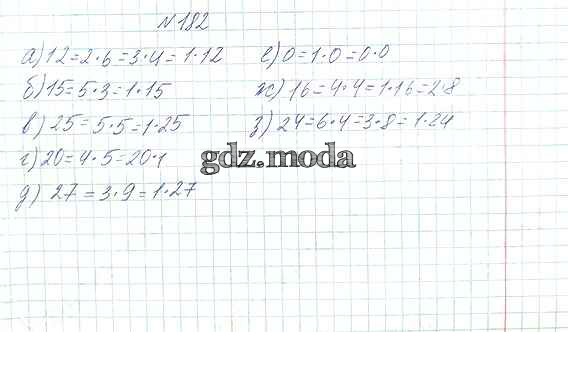 №182
а) 12=2·6=3·4=1·12
б) 15=5·3=1·15
в) 25=5·5=1·25
г) 20=4·5=20·1
д) 27=3·9=1·27
е) 0=1·0=0·0
ж) 16=4·4=1·16=2·8
з) 24=6·4=3·8=1·24
gdz.moda